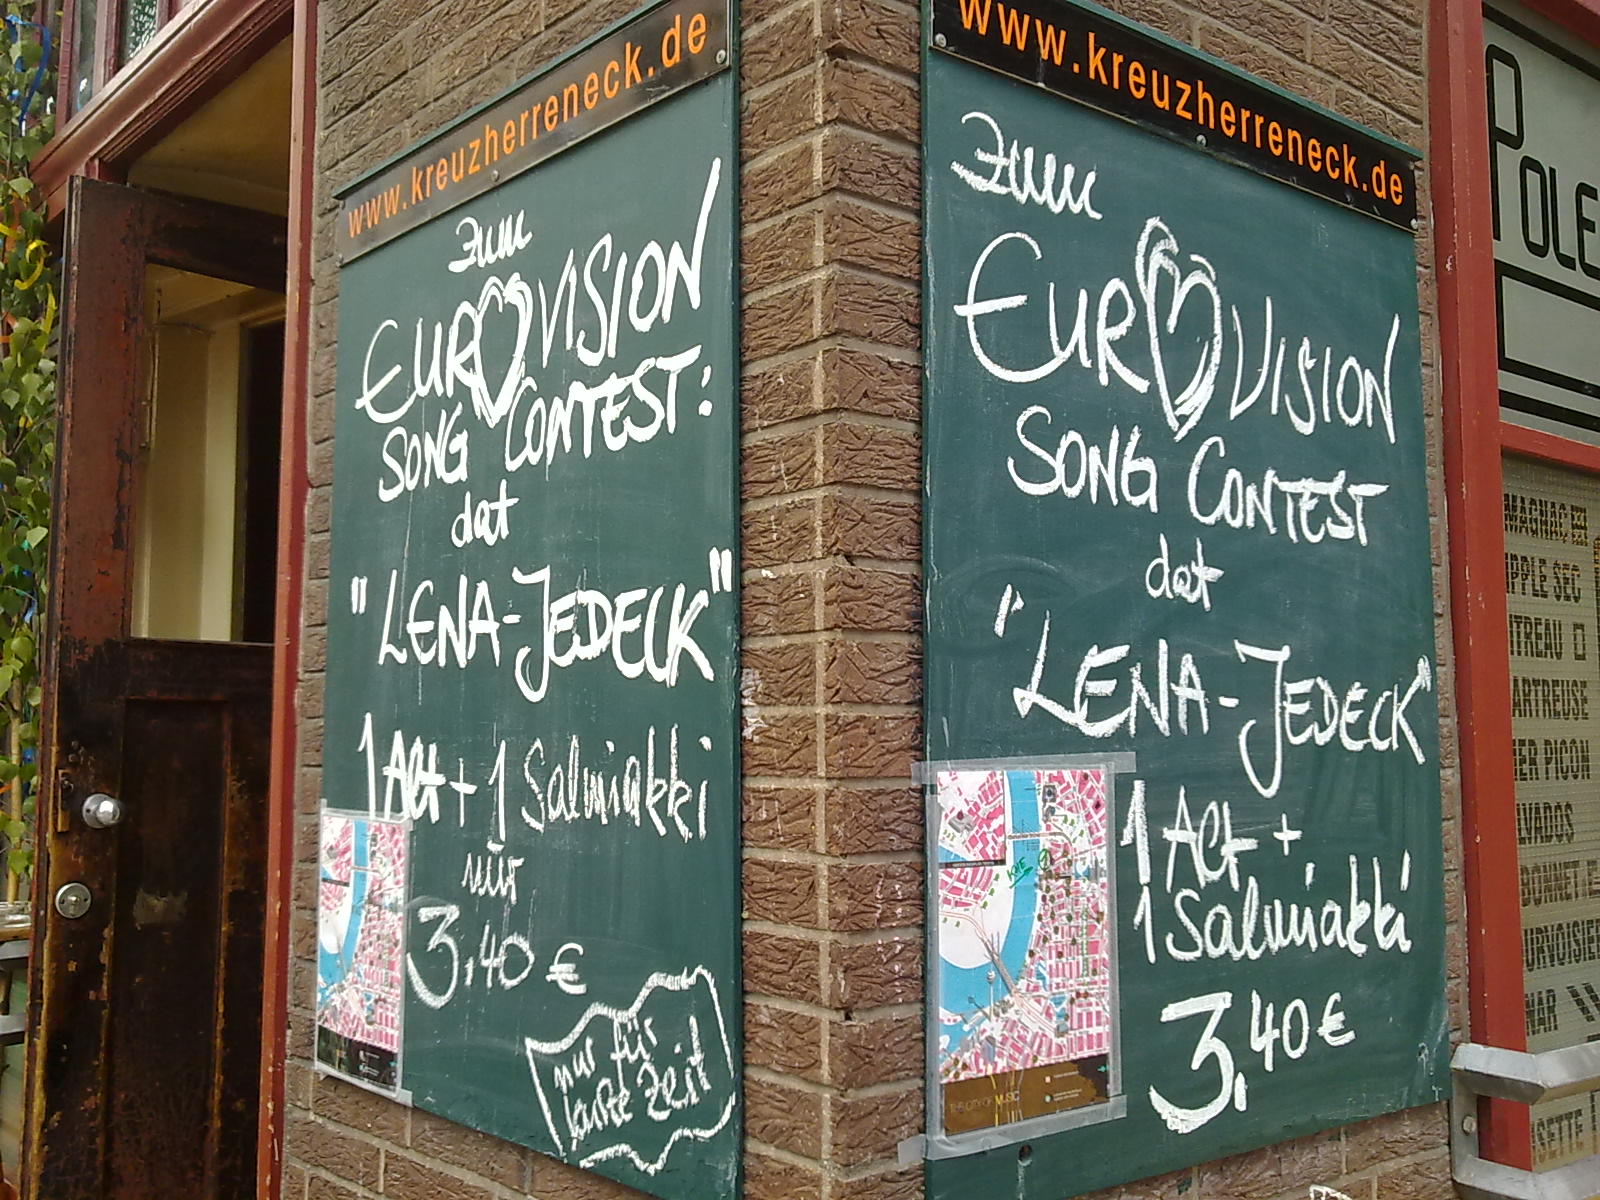 www.kreuzherreneck.de
zum
EUROVISION
SONG CONTEST:
dat
"LENA-JEDECK"
1 Alt + 1 Salmiakki
nur
3,40 €
nur für
kurze Zeit
www.kreuzherreneck.de
zum
EUROVISION
SONG CONTEST
dat
"LENA-JEDECK"
1 Alt +
1 Salmiakki
3,40 €
THE CITY OF MUSIC
POLE
MAGNAC
IPPLE SEC
ITREAU
ARTREUSE
ER PICON
VADOS
DONNET
URVOISIE
NAR
SETTE